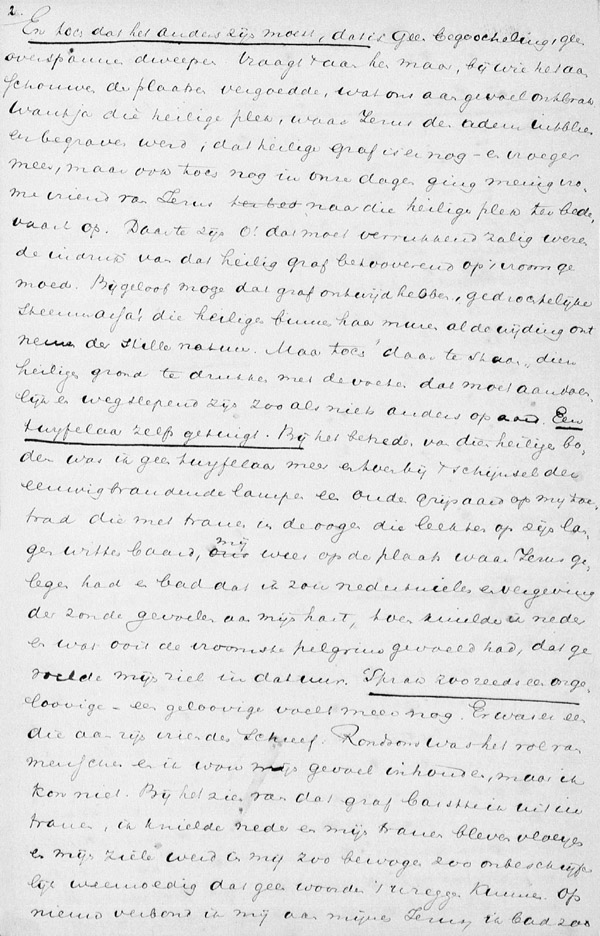 2.
En toch dat het anders zijn moest, dat is geen begoocheling, geen
overspannen dweepen. Vraagt daar hen maar, bij wie het aan
schouwen der plaatsen vergoedde, wat ons aan gevoel ontbrak
Want ja die heilige plek, waar Jezus den adem uitblies
en begraven werd; dat heilige graf is er nog – en vroeger
meer, maar ook toch nog in onze dagen ging menig vro-
me vriend van Jezus naar die heilige plek ter bede,
vaart op. Daar te zijn o! dat moet verrukkend zalig wezen
de indruk van dat heilig graf betooverend op 't vroom ge
moed. Bijgeloof moge dat graf ontwijd hebben, gedrochtelijke
steenmassa's die heiligen binnen haar muren al de wijding ont
nemen der stille natuur. Maar toch! daar te staan, dien
heiligen grond te drukken met de voeten dat moet aandoen
lijk en wegslepend zijn zoo als niets anders op aard. Een
twyfelaar zelf getuigt. Bij het betreden van dien heiligen bo-
dem was ik geen twyfelaar meer en toen bij 't schijnsel der
eeuwigbrandende lampen een oude grijsaard op mij toe
trad die met tranen in de oogen die leekten op zijn lan
gen witten baard, mij wees op de plaats waar Jezus ge-
legen had en bad dat ik zou nederknielen en vergeving
der zonde gevoelen aan mijn hart, toen knielde ik neder
en wat ooit de vroomste pelgrim gevoeld had, dat ge
voelde mijn ziel in dat uur. Sprak zoo reeds een onge-
loovige – een geloovige voelt meer nog. Er was er een
die aan zijn vrienden schreef. Rondsom was het vol van
menschen en ik wou mijn gevoel inhouden, maar ik
kon niet. Bij het zien van dat graf barstte ik uit in
tranen, ik knielde neder en mijn tranen bleven vloeyen
en mijn ziele werd in mij zoo bewogen zoo onbeschrijfe
lijk weemoedig dat geen woorden 't zeggen kunnen. Op
nieuw verbond ik mij aan mijnen Jezus, ik bad zoo